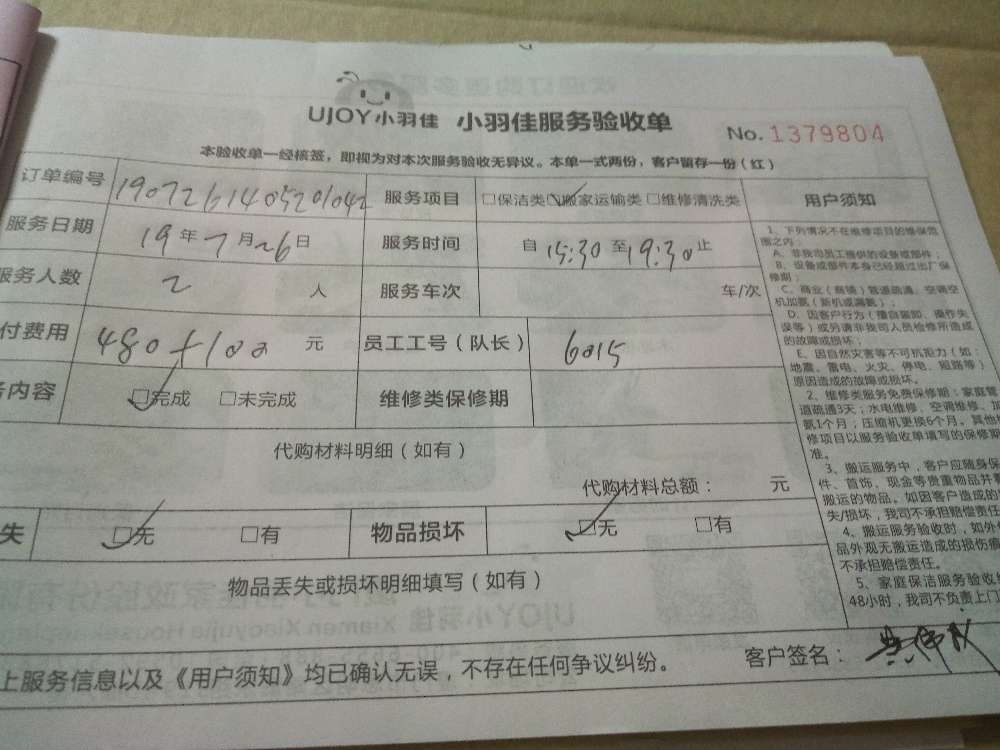 UJOY小羽佳 小羽佳服务验收单
No. 1379804
本验收单一经核签，即视为对本次服务验收无异议。本单一式两份，客户留存一份（红）
订单编号 1907261405201042 服务项目 □保洁类 ☑搬家运输类 □维修清洗类
服务日期 19年7月26日 服务时间 自15:30至19:30止
服务人数 2 人 服务车次 车/次
付费用 480+100 元 员工工号（队长） 6015
务内容 ☑完成 □未完成 维修类保修期
代购材料明细（如有）
代购材料总额： 元
失 ☑无 □有 物品损坏 ☑无 □有
物品丢失或损坏明细填写（如有）
上服务信息以及《用户须知》均已确认无误，不存在任何争议纠纷。 客户签名：
用户须知
1、下列情况不在维修项目的维保范
围之内：
A、非我司员工提供的设备或部件；
B、设备或部件本身已经超过出厂保
修期；
C、商业（商铺）管道疏通、空调空
机加氨（新机或漏氨）；
D、因客户行为（擅自装卸、操作失
误等）或另请非我司人员检修所造成
的故障或损坏；
E、因自然灾害等不可抗拒力（如：
地震、雷电、火灾、停电、短路等）
原因造成的故障或损坏。
2、维修类服务免费保修期：家庭管
道疏通3天；水电维修、空调维修、加
氨1个月；压缩机更换6个月。其他
修项目以服务验收单填写的保修期
准。
3、搬运服务中，客户应随身保
件、首饰、现金等贵重物品并
搬运的物品。如因客户造成的
失/损坏，我司不承担赔偿责任
4、搬运服务验收时，如外
品外观无搬运造成的损伤痕
不承担赔偿责任。
5、家庭保洁服务验收
48小时，我司不负责上门